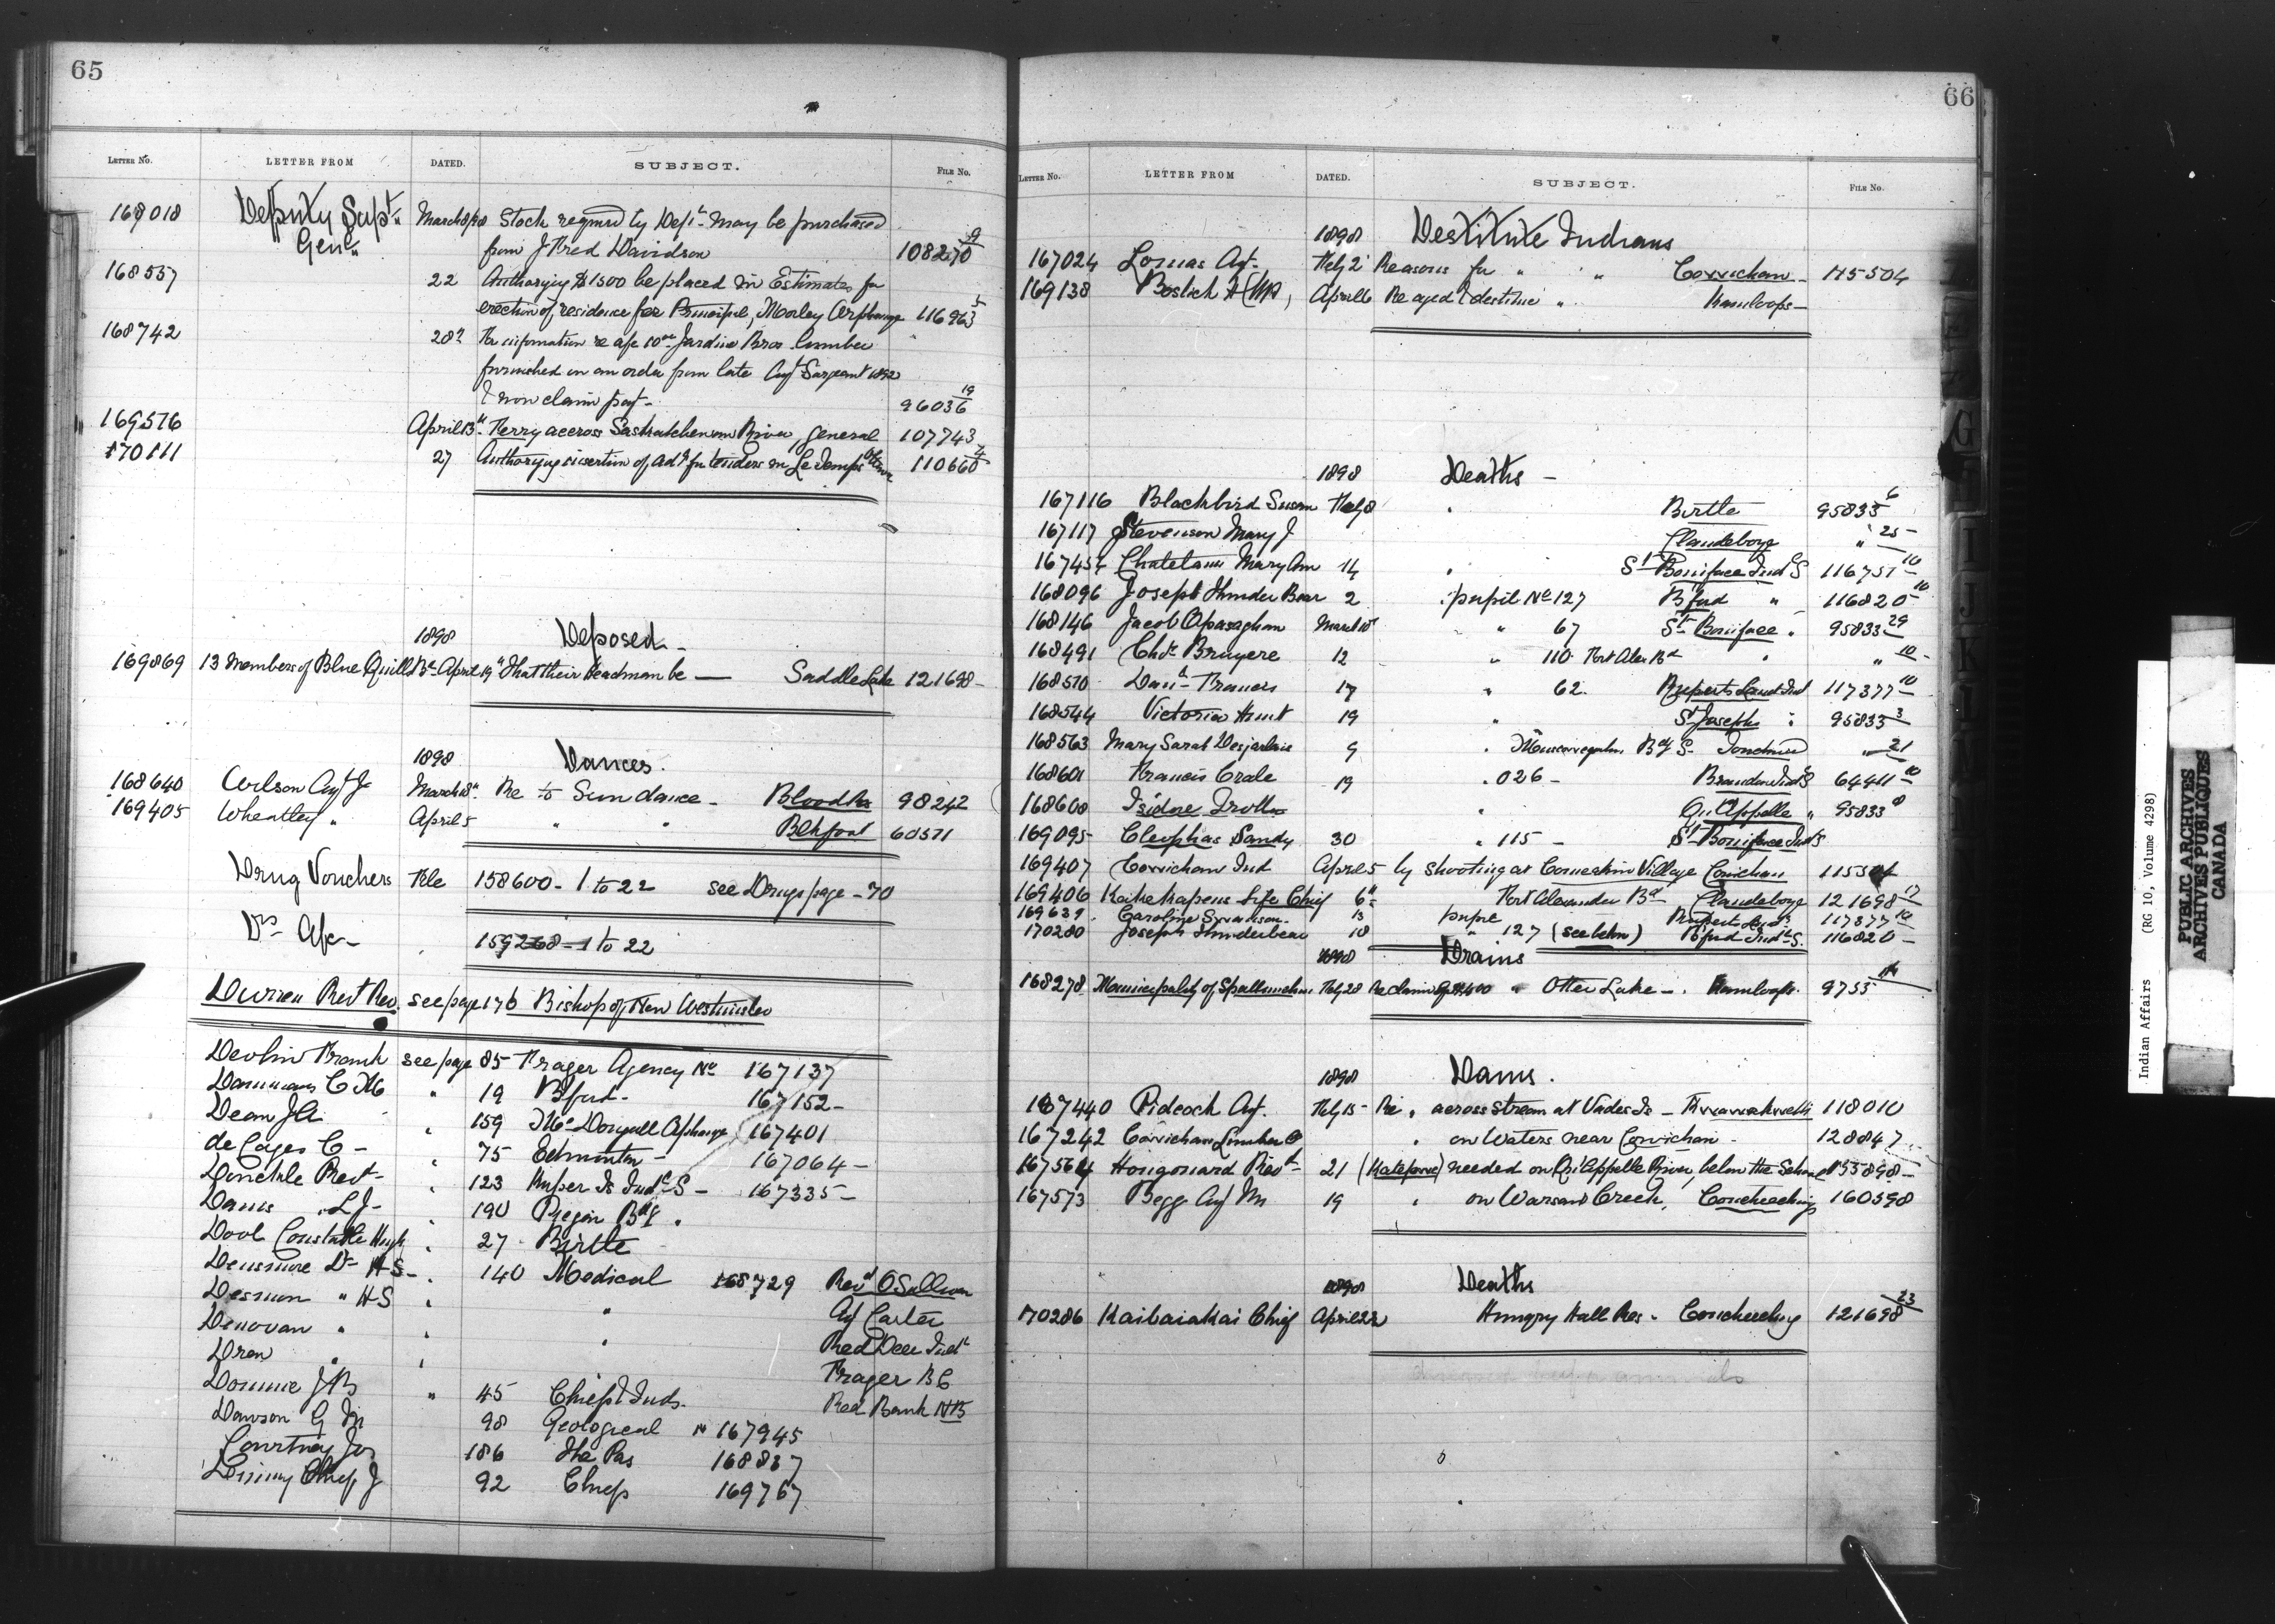 65
LETTER NO. LETTER FROM DATED. SUBJECT. FILE No.
168018 Deputy Supt. March 8/98 Stock required by Dept. may be purchased
Genl. from J Fred Davidson 108270 9
168557 22 Authorizing $1500 be placed in Estimates for
erection of residence for Principal, Morley Orphanage 116963 5
168742 28 For information re a/c Jardine Bros lumber
furnished on an order from late Agt Sargeant 1892
& now claim payt - 96036 19
169576 April 13 Ferry accross Saskatchewan River, general 107743
170111 27 Authorizing insertion of adt for tenders in Le Temps Ottawa 110660 4
1898 Deposed -
169869 13 Members of Blue Quills Bd April 19 That their Headman be — Saddle Lake 121698 -
1898 Dances.
168640 Wilson Agt J March 18 Re to Sun dance - Blood Rs 98242
169405 Wheatley " April 5 " " Blkfoot 60511
Drug Vouchers File 158600 - 1 to 22 see Drugs page - 70
Drs A/c - 159268 - 1 to 22
Durieu Revt Rev. see page 176 Bishop of New Westminster
Devlin Frank see page 85 Frazer Agency No 167137
C " 19 Bfurd - 167152 -
Dean J A " 159 McDougall Orphange 167401
de Cazes C - " 75 Edmonton - 167064 -
Donckele Revt - " 123 Kuper Is Indl S - 167335 -
Davis L J - " 190 Piegan Bdg "
Doob Constable Hugh " 27 Birtle
Densmore Dr H S - " 140 Medical 168729 Revd O'Sullivan
" H S " " Agt Carter
Donovan " " " Red Deer Indl
" " Frazer B C
J B " 45 Chiefs & Inds. Red Bank N B
Dawson G M 98 Geological " 167945
Courtney Jos 186 The Pas 168837
Chief J 92 Chiefs 169767
66
LETTER No. LETTER FROM DATED. SUBJECT. FILE No.
1898 Destitute Indians
167024 Lomas Agt. Feby 2 Reasons for " " Cowichan - 115504
169138 Bostock H (MP) April 6 Re aged & destitute " Kamloops -
1898 Deaths -
167116 Blackbird Susan Feby 8 " Birtle 95833 6
167117 Stevenson Mary J Clandeboye " 25
167454 Chatelaine Mary Ann 14 " St Boniface Indl S 116751 10
168096 Joseph Thunder Bear 2 " pupil No 127 Bfurd " 116820 10
168146 Jacob Apasagham March 10 " 67 St Boniface " 95833 29
168491 Chas Bruyere 12 " 110 Fort Alex Bd " " 10
168510 Danl Francis 17 " 62. Ruperts Land Ind 117377 10
168544 Victoria Hunt 19 " St Josephs " 95833 3
168563 Mary Sarah Desjarlais 9 " Muscowequahn Bdg S. Touchwood " 21
168601 Francis Crate 19 " 026 - Brandon Indl S 64411 10
168608 Isidore Trottier " Qu'Appelle " 95833 8
169095 Cleophas Sandy 30 " 115 - St Boniface Indl S
169407 Cowichan Ind April 5 by shooting at Comeakin Village Cowichan 115504
169406 Kaikekapens Life Chief 6 " Fort Alexander Bd - Clandeboye 121698 17
169639 Caroline Swanson 13 pupil Ruperts Ld Indl 117377 10
170280 Joseph Thunderbear 18 " 127 (see below) Bfurd Indl S. 116820 -
1898 Drains
168278 Municipality of Spallumcheen Feby 28 Re claim of $400 " Otter Lake - . Kamloops. 9755
1898 Dams.
167440 Pidcock Agt. Feby 15 - Re " across stream at Village Is - Kwawkewlth 118010
167242 Cowichan Lumber Co " on Waters near Cowichan - 128847
167564 Hougonard Revt - 21 (Katepwe) needed on Qu'Appelle River, below the School 155898 -
167573 Begg Agt M 19 " on Creek, Coucheeching 160598
1898 Deaths
170286 Kaibaiakai Chief April 22 Hungry Hall Res - Coucheeching 121698 23
Indian Affairs (RG 10, Volume 4298)
PUBLIC ARCHIVES
ARCHIVES PUBLIQUES
CANADA